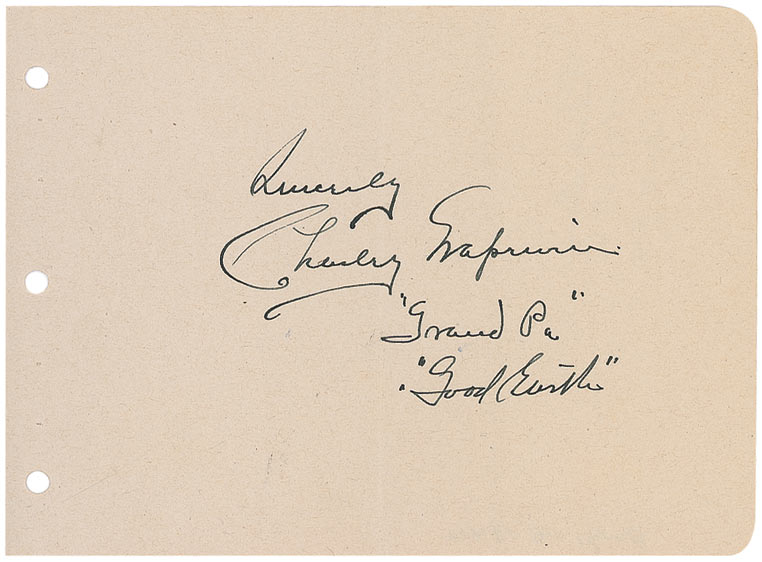 Sincerely
Charley Grapewin
"Grand Pa"
"Good Earth"